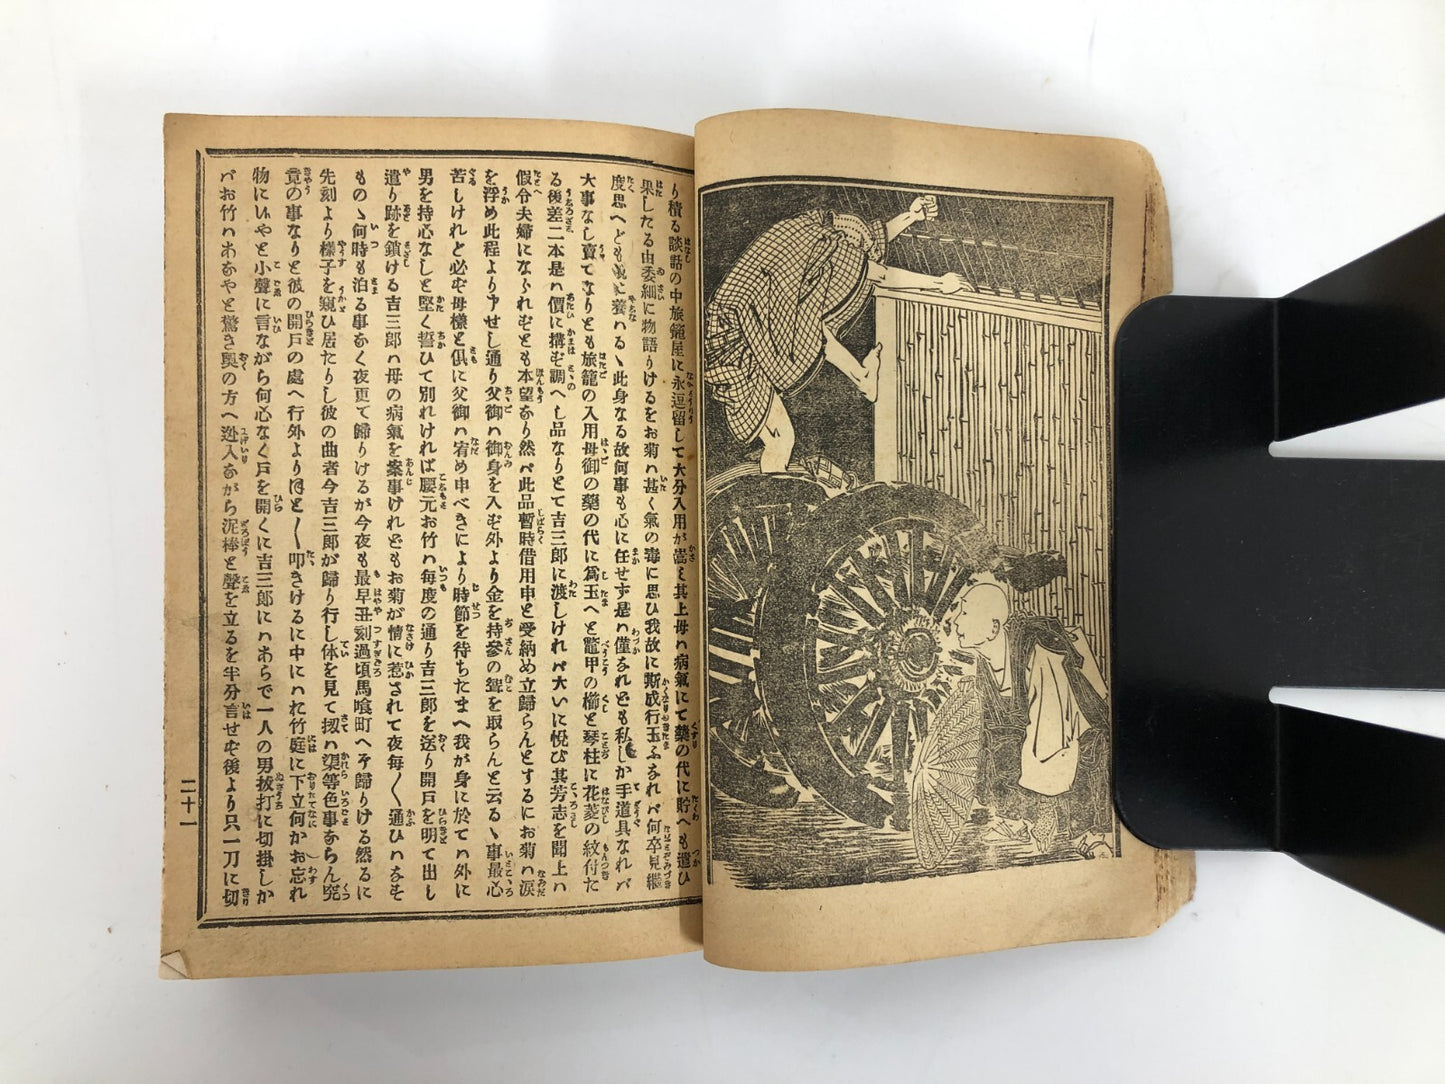 り積る談話の中旅籠屋に永逗留して大分入用が嵩し其上母ハ病氣にて藥の代に貯へも遣ひ
果したる由委細に物語りけるをお菊ハ甚く氣の毒に思ひ我故に斯成行玉ふなれバ何卒見繼
度思へども親に養ハるゝ此身なる故何事も心に任せず是ハ僅なれども私しか手道具なれバ
大事なし賣てなりとも旅籠の入用母御の藥の代に爲玉へと鼈甲の櫛と琴柱に花菱の紋付た
る後差二本是ハ價に搆ず調へし品なりとて吉三郎に渡しけれバ大いに悅び其芳志を聞上ハ
假令夫婦にならずとも本望なり然バ此品暫時借用申と受納め立歸らんとするにお菊ハ淚
を浮め此程より申せし通り父御ハ御身を入ず外より金を持參の聟を取らんと云るゝ事最心
苦しけれと必ず母樣と倶に父御ハ宥め申べきにより時節を待ちたまへ我が身に於てハ外に
男を持心なしと堅く誓ひて別れければ腰元お竹ハ每度の通り吉三郎を送り開戸を明て出し
遣り跡を鎖ける吉三郎ハ母の病氣を案事けれどもお菊が情に惹されて夜每〱通ひハなそ
ものゝ何時も泊る事なく夜更て歸りけるが今夜も最早丑刻過頃馬喰町へぞ歸りける然るに
先刻より樣子を窺ひ居たりし彼の曲者今吉三郎が歸り行し体を見て扨ハ渠等色事ならん究
竟の事なりと彼の開戸の處へ行外よりほと〱叩きけるに中にハお竹庭に下立何かお忘れ
物にいやと小聲に言ながら何心なく戸を開くに吉三郎にハあらで一人の男拔打に切掛しか
バお竹ハあなやと驚き奧の方へ迯入ながら泥棒と聲を立るを半分言せず後より只一刀に切
二十一